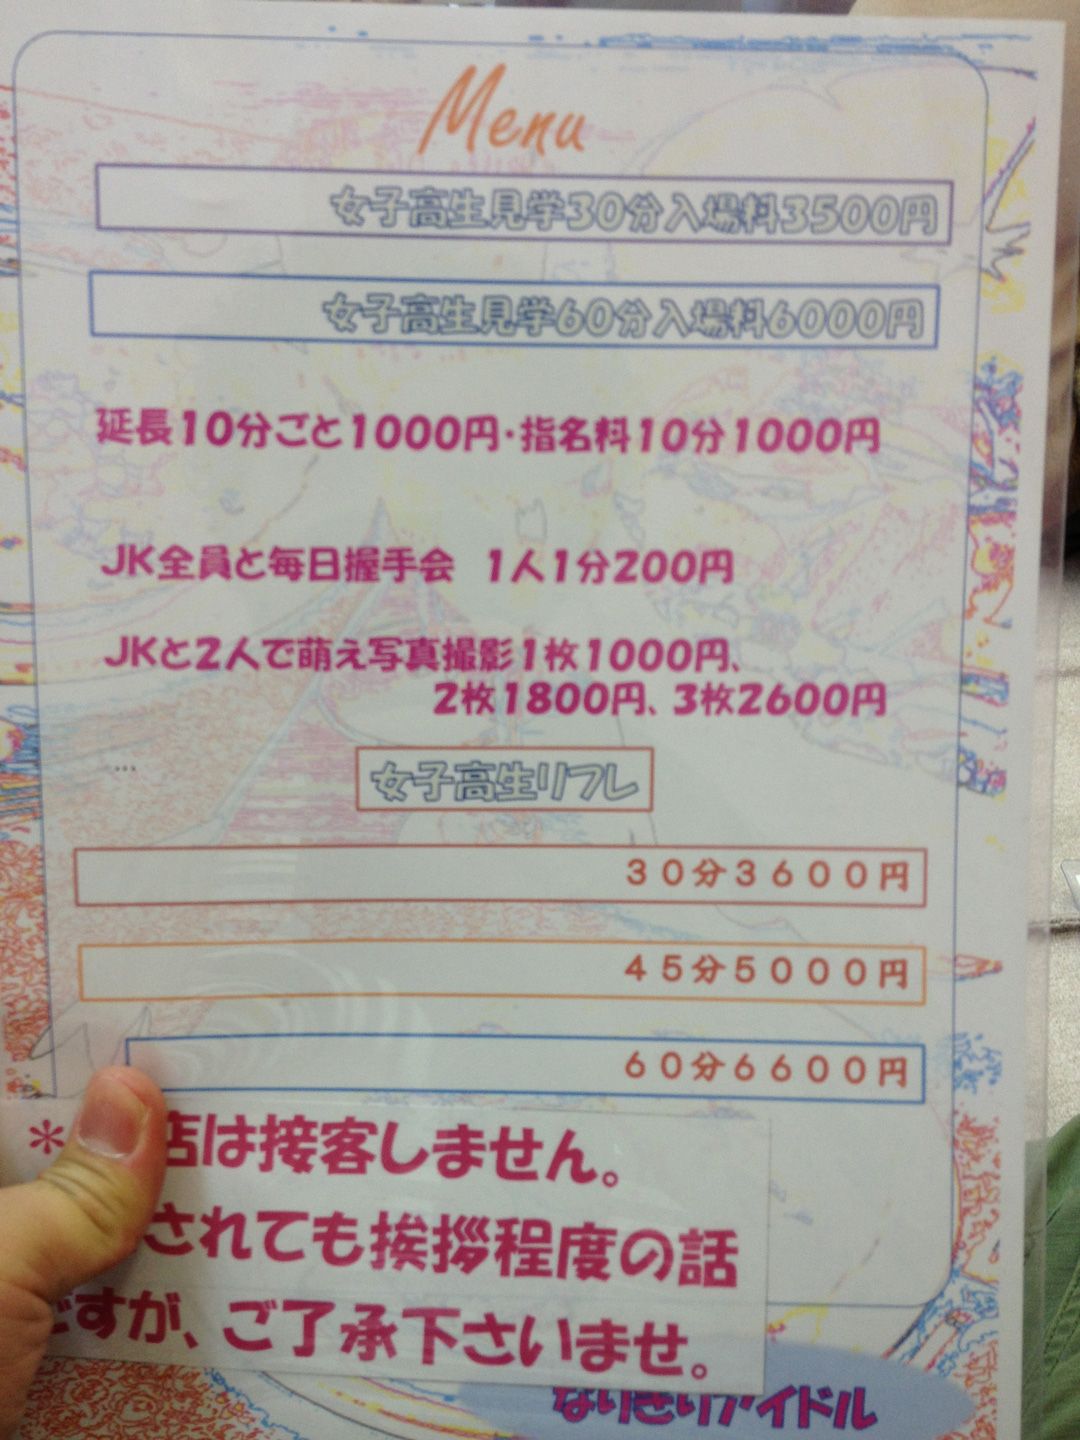 Menu
女子高生見学30分入場料3500円
女子高生見学60分入場料6000円
延長10分ごと1000円・指名料10分1000円
JK全員と毎日握手会 1人1分200円
JKと2人で萌え写真撮影1枚1000円、
2枚1800円、3枚2600円
...
女子高生リフレ
30分3600円
45分5000円
60分6600円
＊ 店は接客しません。
されても挨拶程度の話
ですが、ご了承下さいませ。
なりきりアイドル